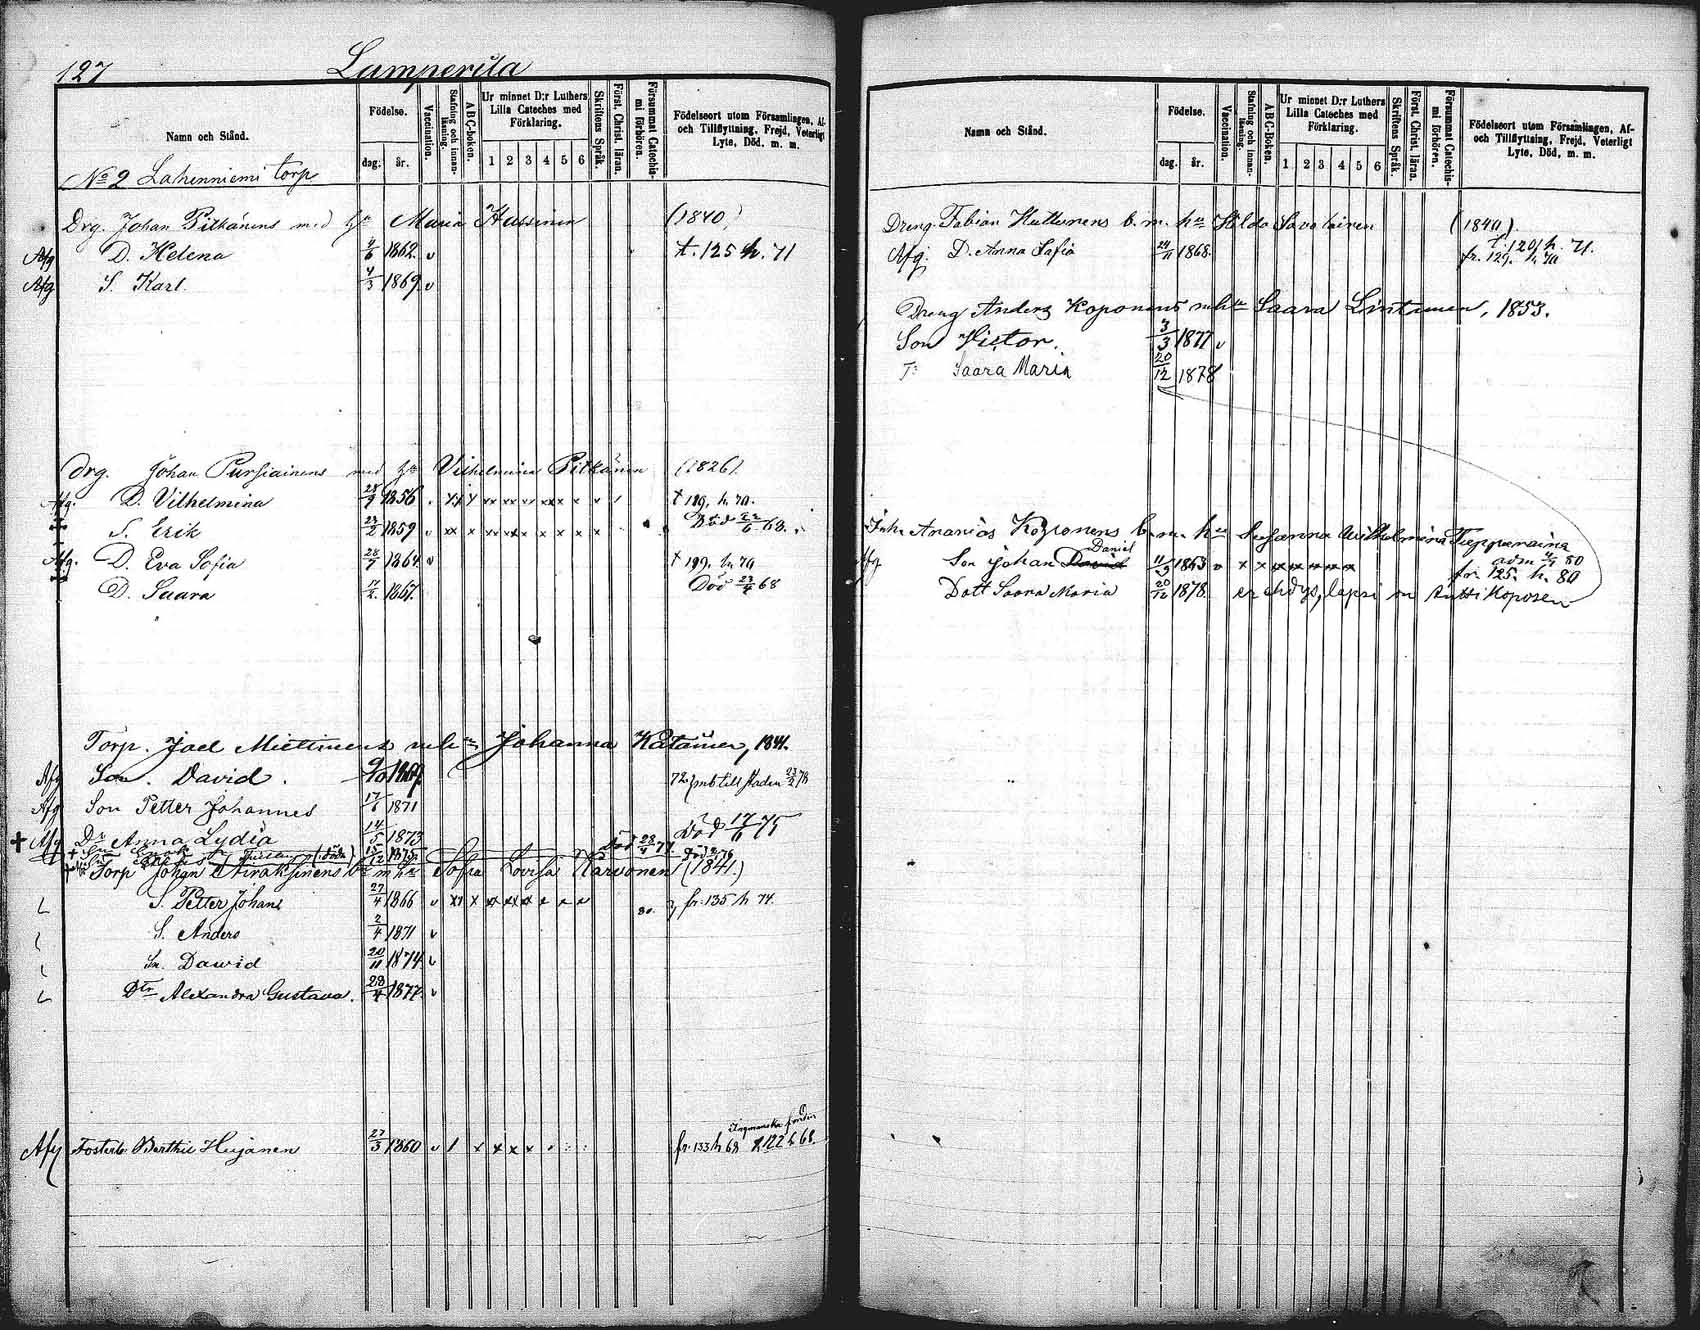 127 Lamperila
Namn och Stånd.
Födelse.
dag. år.
Vaccination.
Stafning och innanläsning.
ABC-boken.
Ur minnet D:r Luthers Lilla Cateches med Förklaring.
1 2 3 4 5 6
Skriftens Språk.
Först. Christ. läran.
Försummat Catechismi förhören.
Födelseort utom Församlingen, Af- och Tillflyttning, Frejd, Veterligt Lyte, Död, m. m.
No 2 Lahenniemi torp
Drg. Johan Pitkänens med h:u Maria Hussinen (1840)
Afg D. Helena 4/6 1862 v t. 125 h. 71
Afg S. Karl. 4/3 1869 v
Drg. Johan Pursiainens med h:u Vilhelmina Pitkänen (1826)
Afg. D. Vilhelmina 28/9 1856 t 199. h. 70.
S. Erik 23/2 1859 v Död 22/6 68.
Afg. D. Eva Sofia 28/7 1864 v t 199. h. 70
D. Saara 1867. Död 23/4 68
Torp. Joel Miettinens m h:u Johanna Katainen, 1841.
Afg Son. David. 72 till staden 78
Afg Son Petter Johannes 17/6 1871
+ Afg D:r Anna Lydia 14/5 1873 Död 17/6 75
Död 28/4 77.
Torp Johan Airaksinens m h:u Sofia Lovisa Karvonen (1841.)
S. Petter Johan 27/4 1866 v 80. fr. 135 h 74.
S. Anders 2/4 1871 v
Sn. Dawid 20/11 1874 v
Dtr Alexandra Gustava. 28/4 1877. v
Afg Fosterb. Berthil Heijanen 27/3 1860 v fr. 133 h 68 122 h 68.
Namn och Stånd.
Födelse.
dag. år.
Vaccination.
Stafning och innanläsning.
ABC-boken.
Ur minnet D:r Luthers Lilla Cateches med Förklaring.
1 2 3 4 5 6
Skriftens Språk.
Först. Christ. läran.
Försummat Catechismi förhören.
Födelseort utom Församlingen, Af- och Tillflyttning, Frejd, Veterligt Lyte, Död, m. m.
Dreng Fabian Huttunens b. m. h:u Hilda Savolainen (1840).
Afg. D. Anna Sofia 24/11 1868. t. 120 h. 71.
fr. 129. h. 70
Dreng Anders Koponens m h:u Saara Lintunen, 1853.
Son Victor. 3/3 1877 v
Saara Maria 20/12 1878
Inh. Ananias Koponens b. m. h:u Susanna Wilhelmina Tippunaina
Afg. Son Johan David Daniel 11/9 1863 v adm 80
fr. 125. h. 80
Dott Saara Maria 20/12 1878. erehdys, lapsi on Antti Koposen